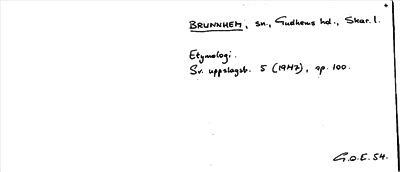 BRUNNHEM, sn., Gudhems hd., Skar. l.
Etymologi.
Sv. uppslagsb. 5 (1947), sp. 100.
G.O.E. 54.